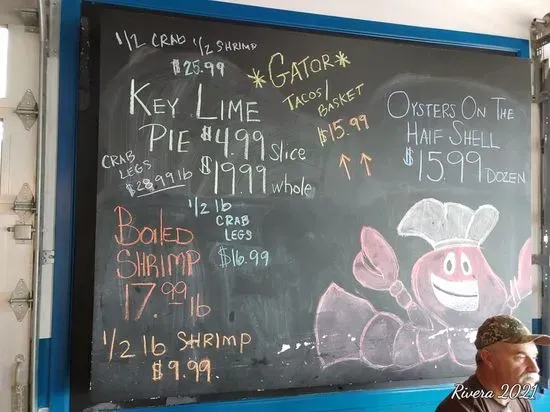 1/2 CRAB 1/2 SHRIMP
$25.99
*GATOR*
TACOS/
BASKET
$15.99
KEY LIME
PIE $4.99 Slice
$19.99 whole
CRAB
LEGS
$28.99 lb
OYSTERS ON THE
HAlF SHELL
$15.99 DOZEN
1/2 lb
CRAB
LEGS
$16.99
Boiled
SHRIMP
17.99 lb
1/2 lb SHRIMP
$9.99
Rivera 2021